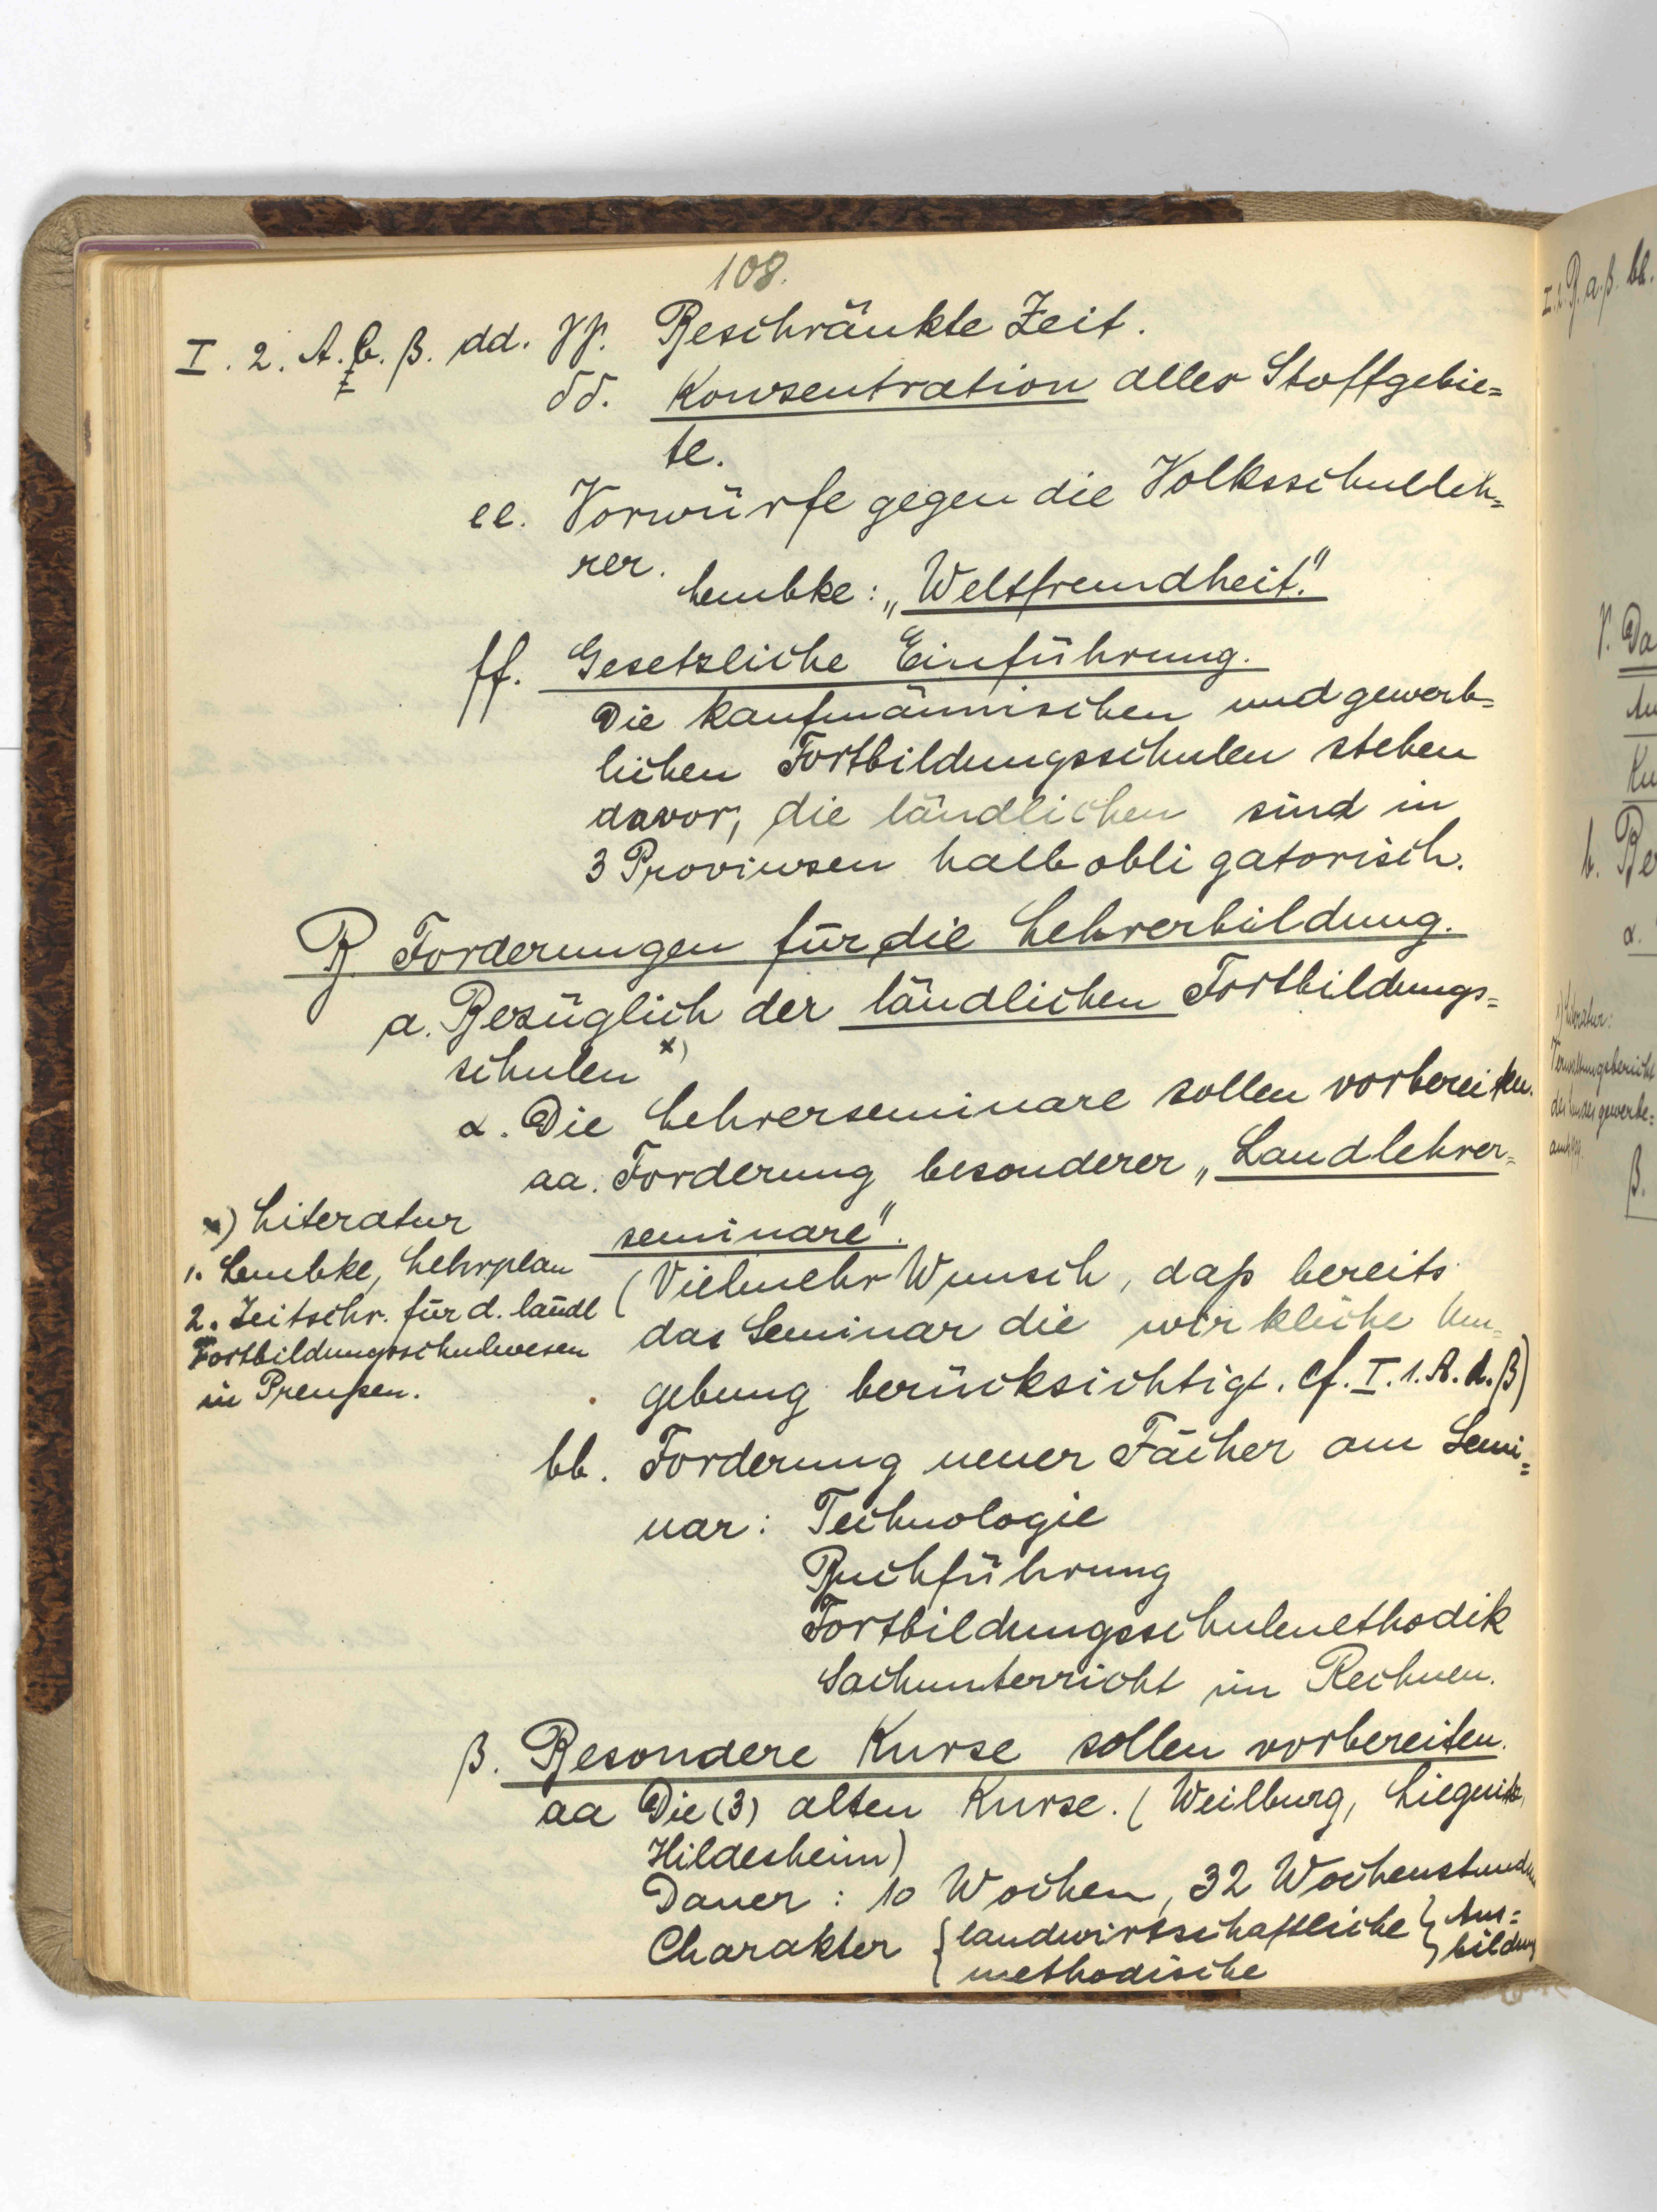 108.
I. 2. A. b. β. dd. γγ. Beschränkte Zeit.
δδ. Konzentration aller Stoffgebie=
te.
ee. Vorwürfe gegen die Volksschulleh=
rer.
Lembke: „Weltfremdheit."
ff. Gesetzliche Einführung.
Die kaufmännischen und gewerb=
lichen Fortbildungsschulen stehen
davor, die ländlichen sind in
3 Provinzen halb obligatorisch.
B Forderungen für die Lehrerbildung.
a. Bezüglich der ländlichen Fortbildungs=
schulen x)
α. Die Lehrerseminare sollen vorbereiten.
aa. Forderung besonderer „Landlehrer=
seminare".
(Vielmehr Wunsch, daß bereits
das Seminar die wirkliche Um=
gebung berücksichtigt. cf. I. 1. A. d. β)
x) Literatur
1. Lembke, Lehrplan
2. Zeitschr. für d. ländl
Fortbildungsschulwesen
in Preußen.
bb. Forderung neuer Fächer am Semi=
nar: Technologie
Buchführung
Fortbildungsschulmethodik
Sachunterricht im Rechnen.
β. Besondere Kurse sollen vorbereiten.
aa Die (3) alten Kurse. (Weilburg, Liegnitz,
Hildesheim)
Dauer: 10 Wochen, 32 Wochenstunden
Charakter { landwirtschaftliche } Aus=
{ methodische } bildung
I. 2. B. a. β. bb.
γ. Da
b. Be
α.
Literatur:
Verwaltungsbericht
des Landesgewerbe=
β.